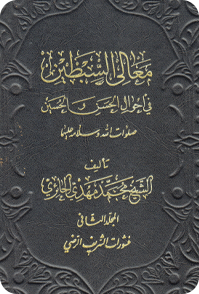 معالي السبطين
في أحوال الحسن والحسين
صلوات الله وسلامه عليهما
تأليف
الشيخ محمد مهدي الحائري
المجلد الثاني
منشورات الشريف الرضي